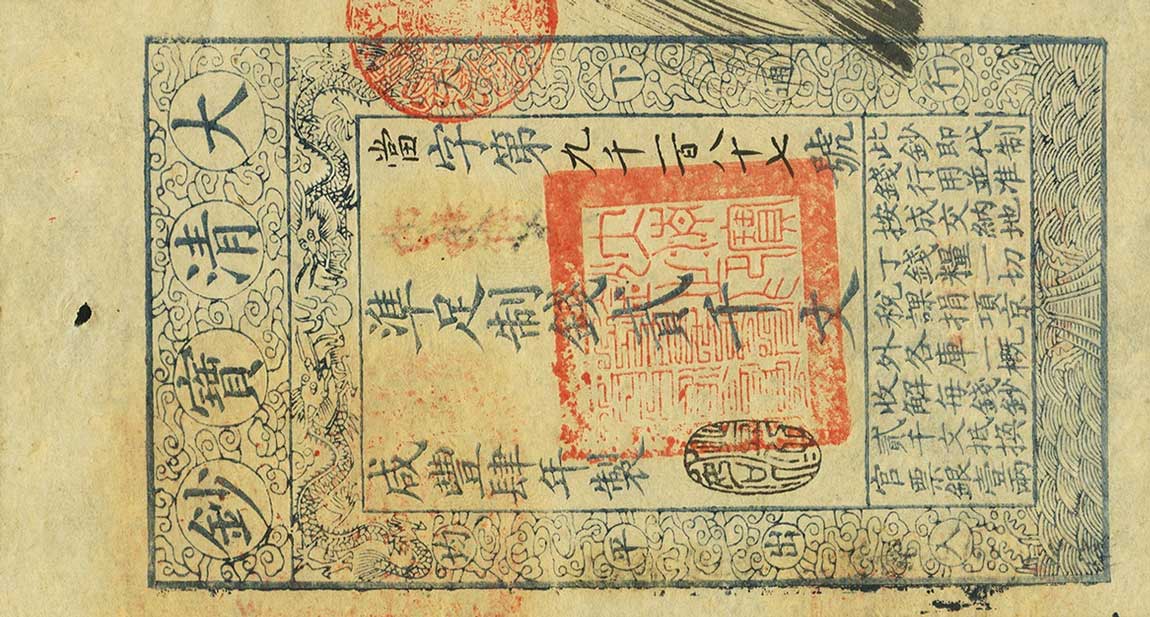 大清寶鈔
天下通行
均平出入
當字第九千百八十七號
準足制錢貳千文
咸豐肆年製
此鈔即代制
錢行用並准
按成交納地
丁錢糧一切
稅課捐項京
外各庫一概
收解每錢鈔
貳千文抵換
官票銀壹兩